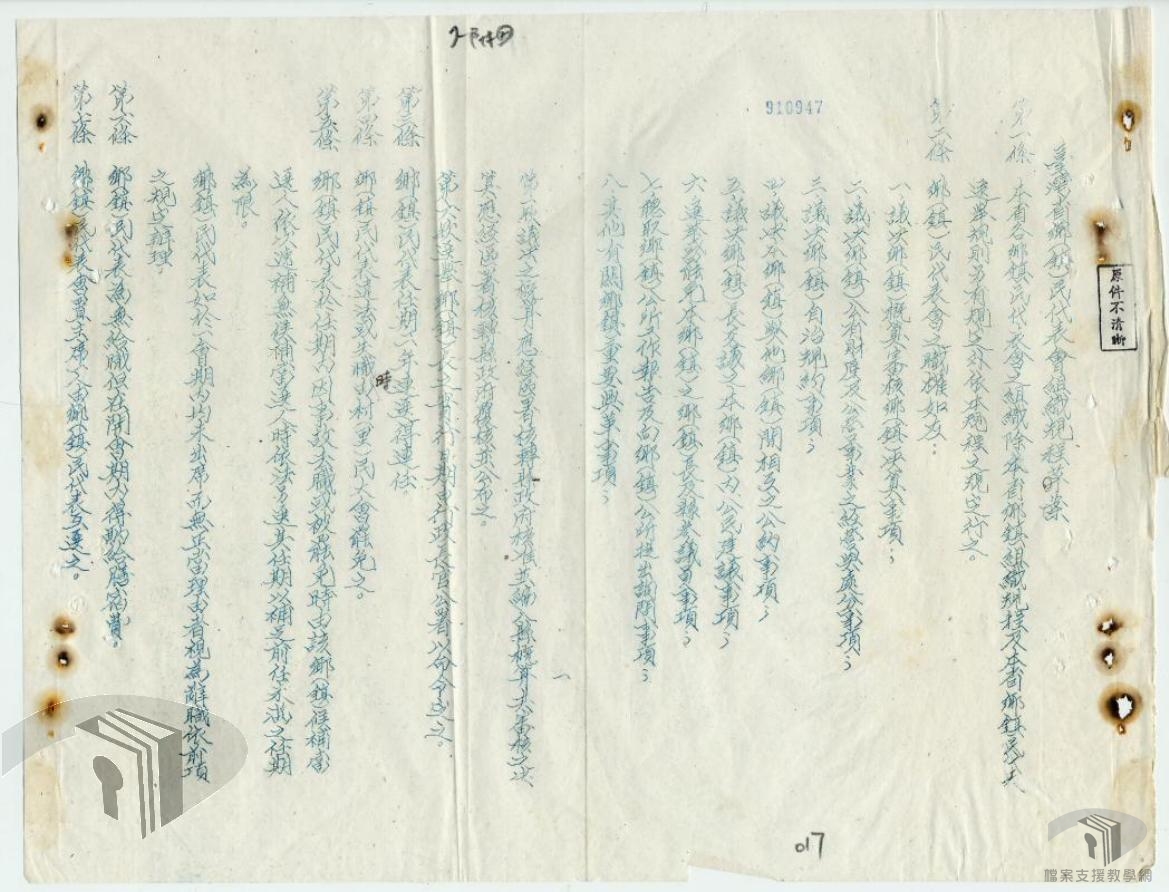 2-附件四
910947
原件不清晰
臺灣省鄉(鎮)民代表會組織規程草案
第一條 本省各鄉鎮民代表會之組織除本省鄉鎮組織規程及本省鄉鎮民代表
選舉規則另有規定外依本規程之規定行之。
第二條 鄉(鎮)民代表會之職權如左:
一、議決鄉(鎮)概算審核鄉(鎮)決算事項;
二、議決鄉(鎮)公有財產及公營事業之經營與處分事項;
三、議決鄉(鎮)自治規約事項;
四、議決本鄉(鎮)與他鄉(鎮)間相互之公約事項;
五、議決鄉(鎮)長交議之本鄉(鎮)內公民建議事項;
六、選舉或罷免本鄉(鎮)之鄉(鎮)長及縣參議員事項;
七、聽取鄉(鎮)公所工作報告及向鄉(鎮)公所提出詢問事項;
八、其他有關鄉鎮重要興革事項;
第一款議決之概算應經區署核轉縣政府核准並編入縣概算其審核之決
算應經區署核轉縣政府覆核並公布之。
第六款選舉鄉(鎮)長之實行日期由行政長官公署以命令定之。
第三條 鄉(鎮)民代表任期二年連選得連任
第四條 鄉(鎮)民代表違法或失職時由村(里)民大會罷免之。
第五條 鄉(鎮)民代表於任期內因事故去職或被罷免時由該鄉(鎮)候補當
選人依次遞補無候補當選人時依法另選其任期以補足前任未滿之任期
為限。
鄉(鎮)民代表如於一會期內均未出席而無正當理由者視為辭職依前項
之規定辦理。
第六條 鄉(鎮)民代表為無給職但在開會期內得酌給膳宿費。
第七條 鄉(鎮)民代表會置主席一人由鄉(鎮)民代表互選之。
一
017
檔案支援教學網